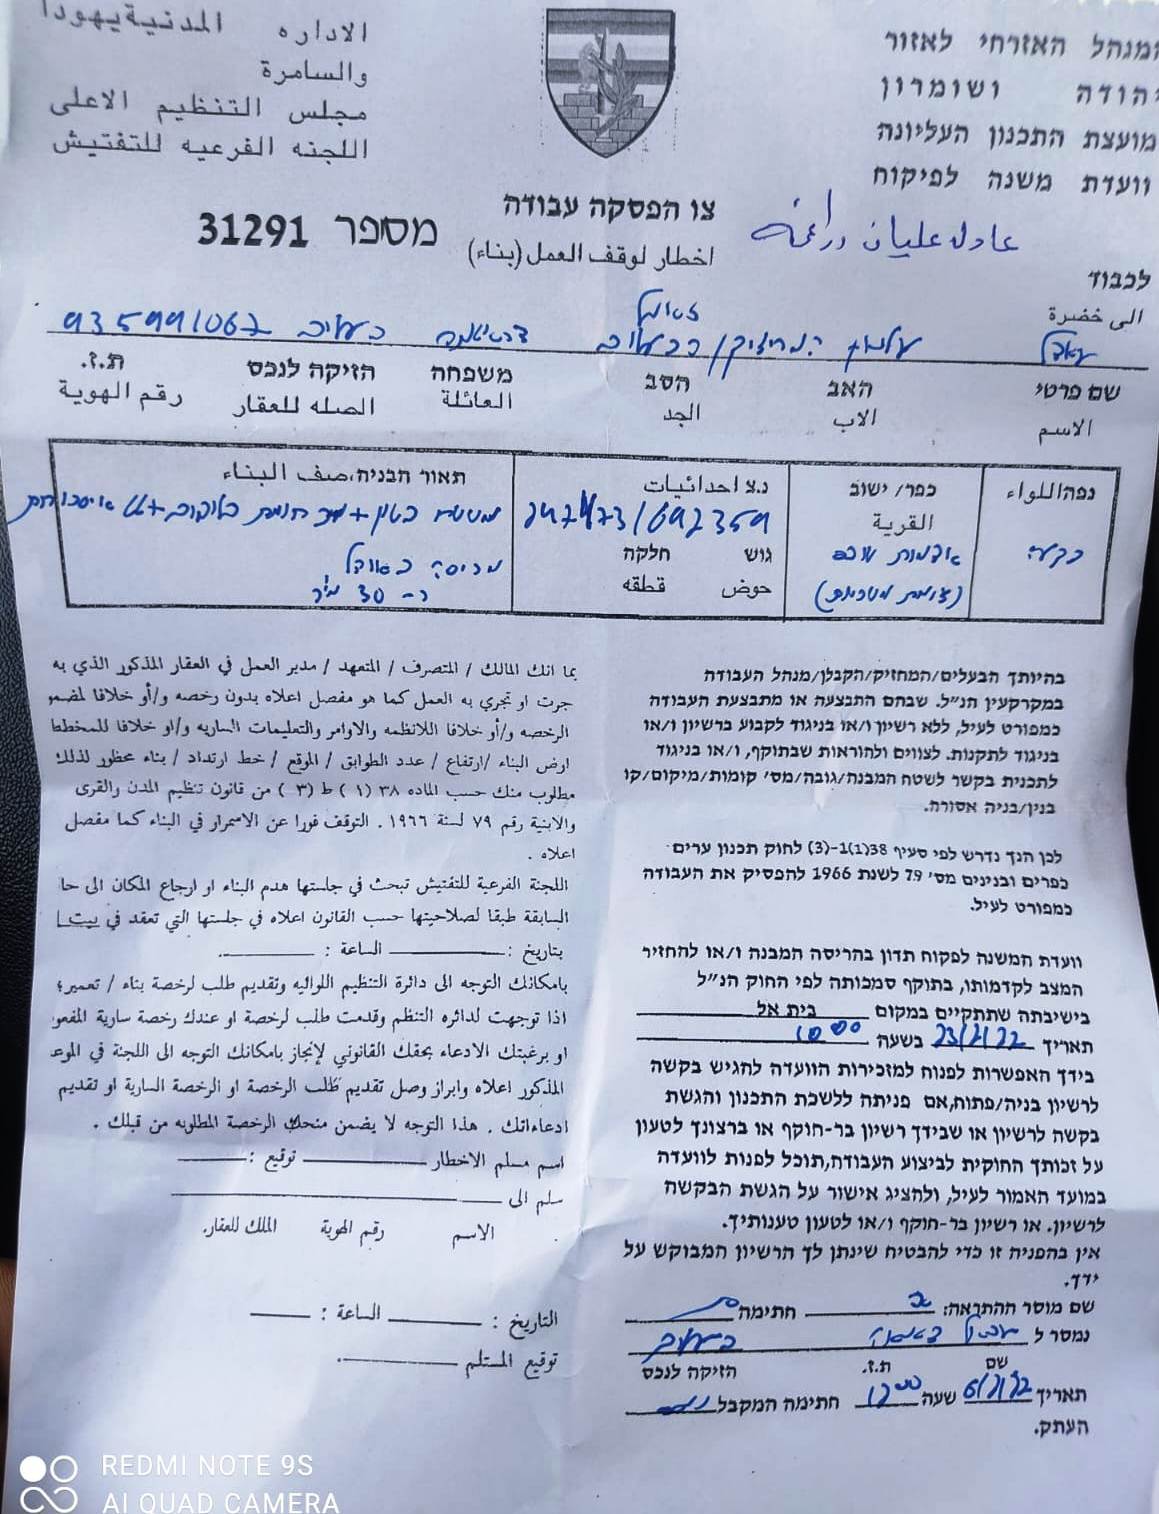 המנהל האזרחי לאזור
יהודה ושומרון
מועצת התכנון העליונה
וועדת משנה לפיקוח
الاداره المدنية يهودا
والسامرة
مجلس التنظيم الاعلى
اللجنه الفرعيه للتفتيش
צו הפסקה עבודה
اخطار لوقف العمل (بناء)
מספר 31291
عادل عليان دراغمة
לכבוד
الى خضرة
935991067
שם פרטי האב הסב משפחה הזיקה לנכס ת.ז.
الاسم الاب الجد العائلة الصله للعقار رقم الهوية
נפה اللواء
בקעה
כפר/ ישוב
القرية
אדמות
נ.צ احداثيات
692359
גוש חלקה
حوض قطقه
תאור הבניה، صف البناء
משטח בטון +
ב- 30 מ"ר
בהיותך הבעלים/המחזיק/הקבלן/מנהל העבודה
במקרקעין הנ"ל. שבהם התבצעה או מתבצעת העבודה
כמפורט לעיל, ללא רשיון ו/או בניגוד לקבוע ברשיון ו/או
בניגוד לתקנות. לצווים ולהוראות שבתוקף, ו/או בניגוד
לתכנית בקשר לשטח המבנה/גובה/מס' קומות/מיקום/קו
בנין/בניה אסורה.
לכן הנך נדרש לפי סעיף 38(1)1-(3) לחוק תכנון ערים
כפרים ובנינים מס' 79 לשנת 1966 להפסיק את העבודה
כמפורט לעיל.
וועדת המשנה לפקוח תדון בהריסה המבנה ו/או להחזיר
המצב לקדמותו, בתוקף סמכותה לפי החוק הנ"ל
בישיבתה שתתקיים במקום בית אל
תאריך 23/2/22 בשעה 10:00
בידך האפשרות לפנות למזכירות הוועדה להגיש בקשה
לרשיון בניה/פתוח,אם פניתה ללשכת התכנון והגשת
בקשה לרשיון או שבידך רשיון בר-חוקף או ברצונך לטעון
על זכותך החוקית לביצוע העבודה,תוכל לפנות לוועדה
במועד האמור לעיל, ולהציג אישור על הגשת הבקשה
לרשיון. או רשיון בר-חוקף ו/או לטעון טענותיך.
אין בהפניה זו כדי להבטיח שינתן לך הרשיון המבוקש על
ידך.
שם מוסר ההתראה: חתימה
נמסר ל
שם ת.ז. הזיקה לנכס
תאריך 6/2/22 שעה 12:00 חתימה המקבל
העתק.
بما انك المالك / المتصرف / المتعهد / مدير العمل في العقار المذكور الذي به
جرت او تجري به العمل كما هو مفصل اعلاه بدون رخصه و/أو خلافا لمضمو
الرخصه و/أو خلافا للانظمه والاوامر والتعليمات الساريه و/او خلافا للمخطط
ارض البناء /ارتفاع / عدد الطوابق / الموقع / خط ارتداد / بناء محظور لذلك
مطلوب منك حسب الماده ٣٨ (١) ط (٣) من قانون تنظيم المدن والقرى
والابنية رقم ٧٩ لسنة ١٩٦٦ . التوقف فورا عن الاسمرار في البناء كما مفصل
اعلاه .
اللجنة الفرعية للتفتيش تبحث في جلستها هدم البناء او ارجاع المكان الى حا
السابقة طبقا لصلاحيتها حسب القانون اعلاه في جلستها التي تعقد في بيت ا
بتاريخ : الساعة :
بامكانك التوجه الى دائرة التنظيم اللوائيه وتقديم طلب لرخصة بناء / تعمير؛
اذا توجهت لدائره التنظم وقدمت طلب لرخصة او عندك رخصة سارية المفعو
او برغبتك الادعاء بحقك القانوني لإنجاز بامكانك التوجه الى اللجنة في الموعد
المذكور اعلاه وابراز وصل تقديم طلب الرخصة او الرخصة السارية او تقديم
ادعاءاتك . هذا التوجه لا يضمن منحك الرخصة المطلوبه من قبلك .
اسم مسلم الاخطار توقيع :
سلم الى
الاسم رقم الهوية الملك للعقار.
التاريخ : الساعة :
توقيع المستلم
REDMI NOTE 9S
AI QUAD CAMERA